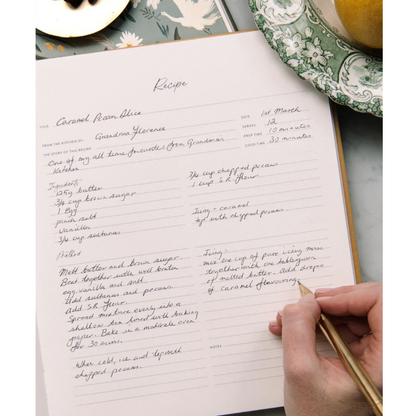 Recipe
TITLE Caramel Pecan Slice
FROM THE KITCHEN OF: Grandma Florence
THE STORY OF THIS RECIPE One of my all time favourites from Grandmas
Kitchen
DATE 1st March
SERVES 12
PREP TIME 10 minutes
COOK TIME 30 minutes
Ingredients
125g butter
3/4 cup brown sugar
1 egg
pinch salt
vanilla
3/4 cup sultanas
3/4 cup chopped pecans
1 cup S.R. flour
Icing - caramel
top with chopped pecans
Method
Melt butter and brown sugar.
Beat together with well beaten
egg, vanilla and salt.
Add sultanas and pecans.
Add S.R. flour.
Spread mixture evenly into a
shallow tin lined with baking
paper. Bake in a moderate oven
for 30 mins.
When cold, ice and top with
chopped pecans.
Icing:-
mix one cup of pure icing mix
together with one tablespoon
of melted butter. Add drops
of caramel flavouring
NOTES